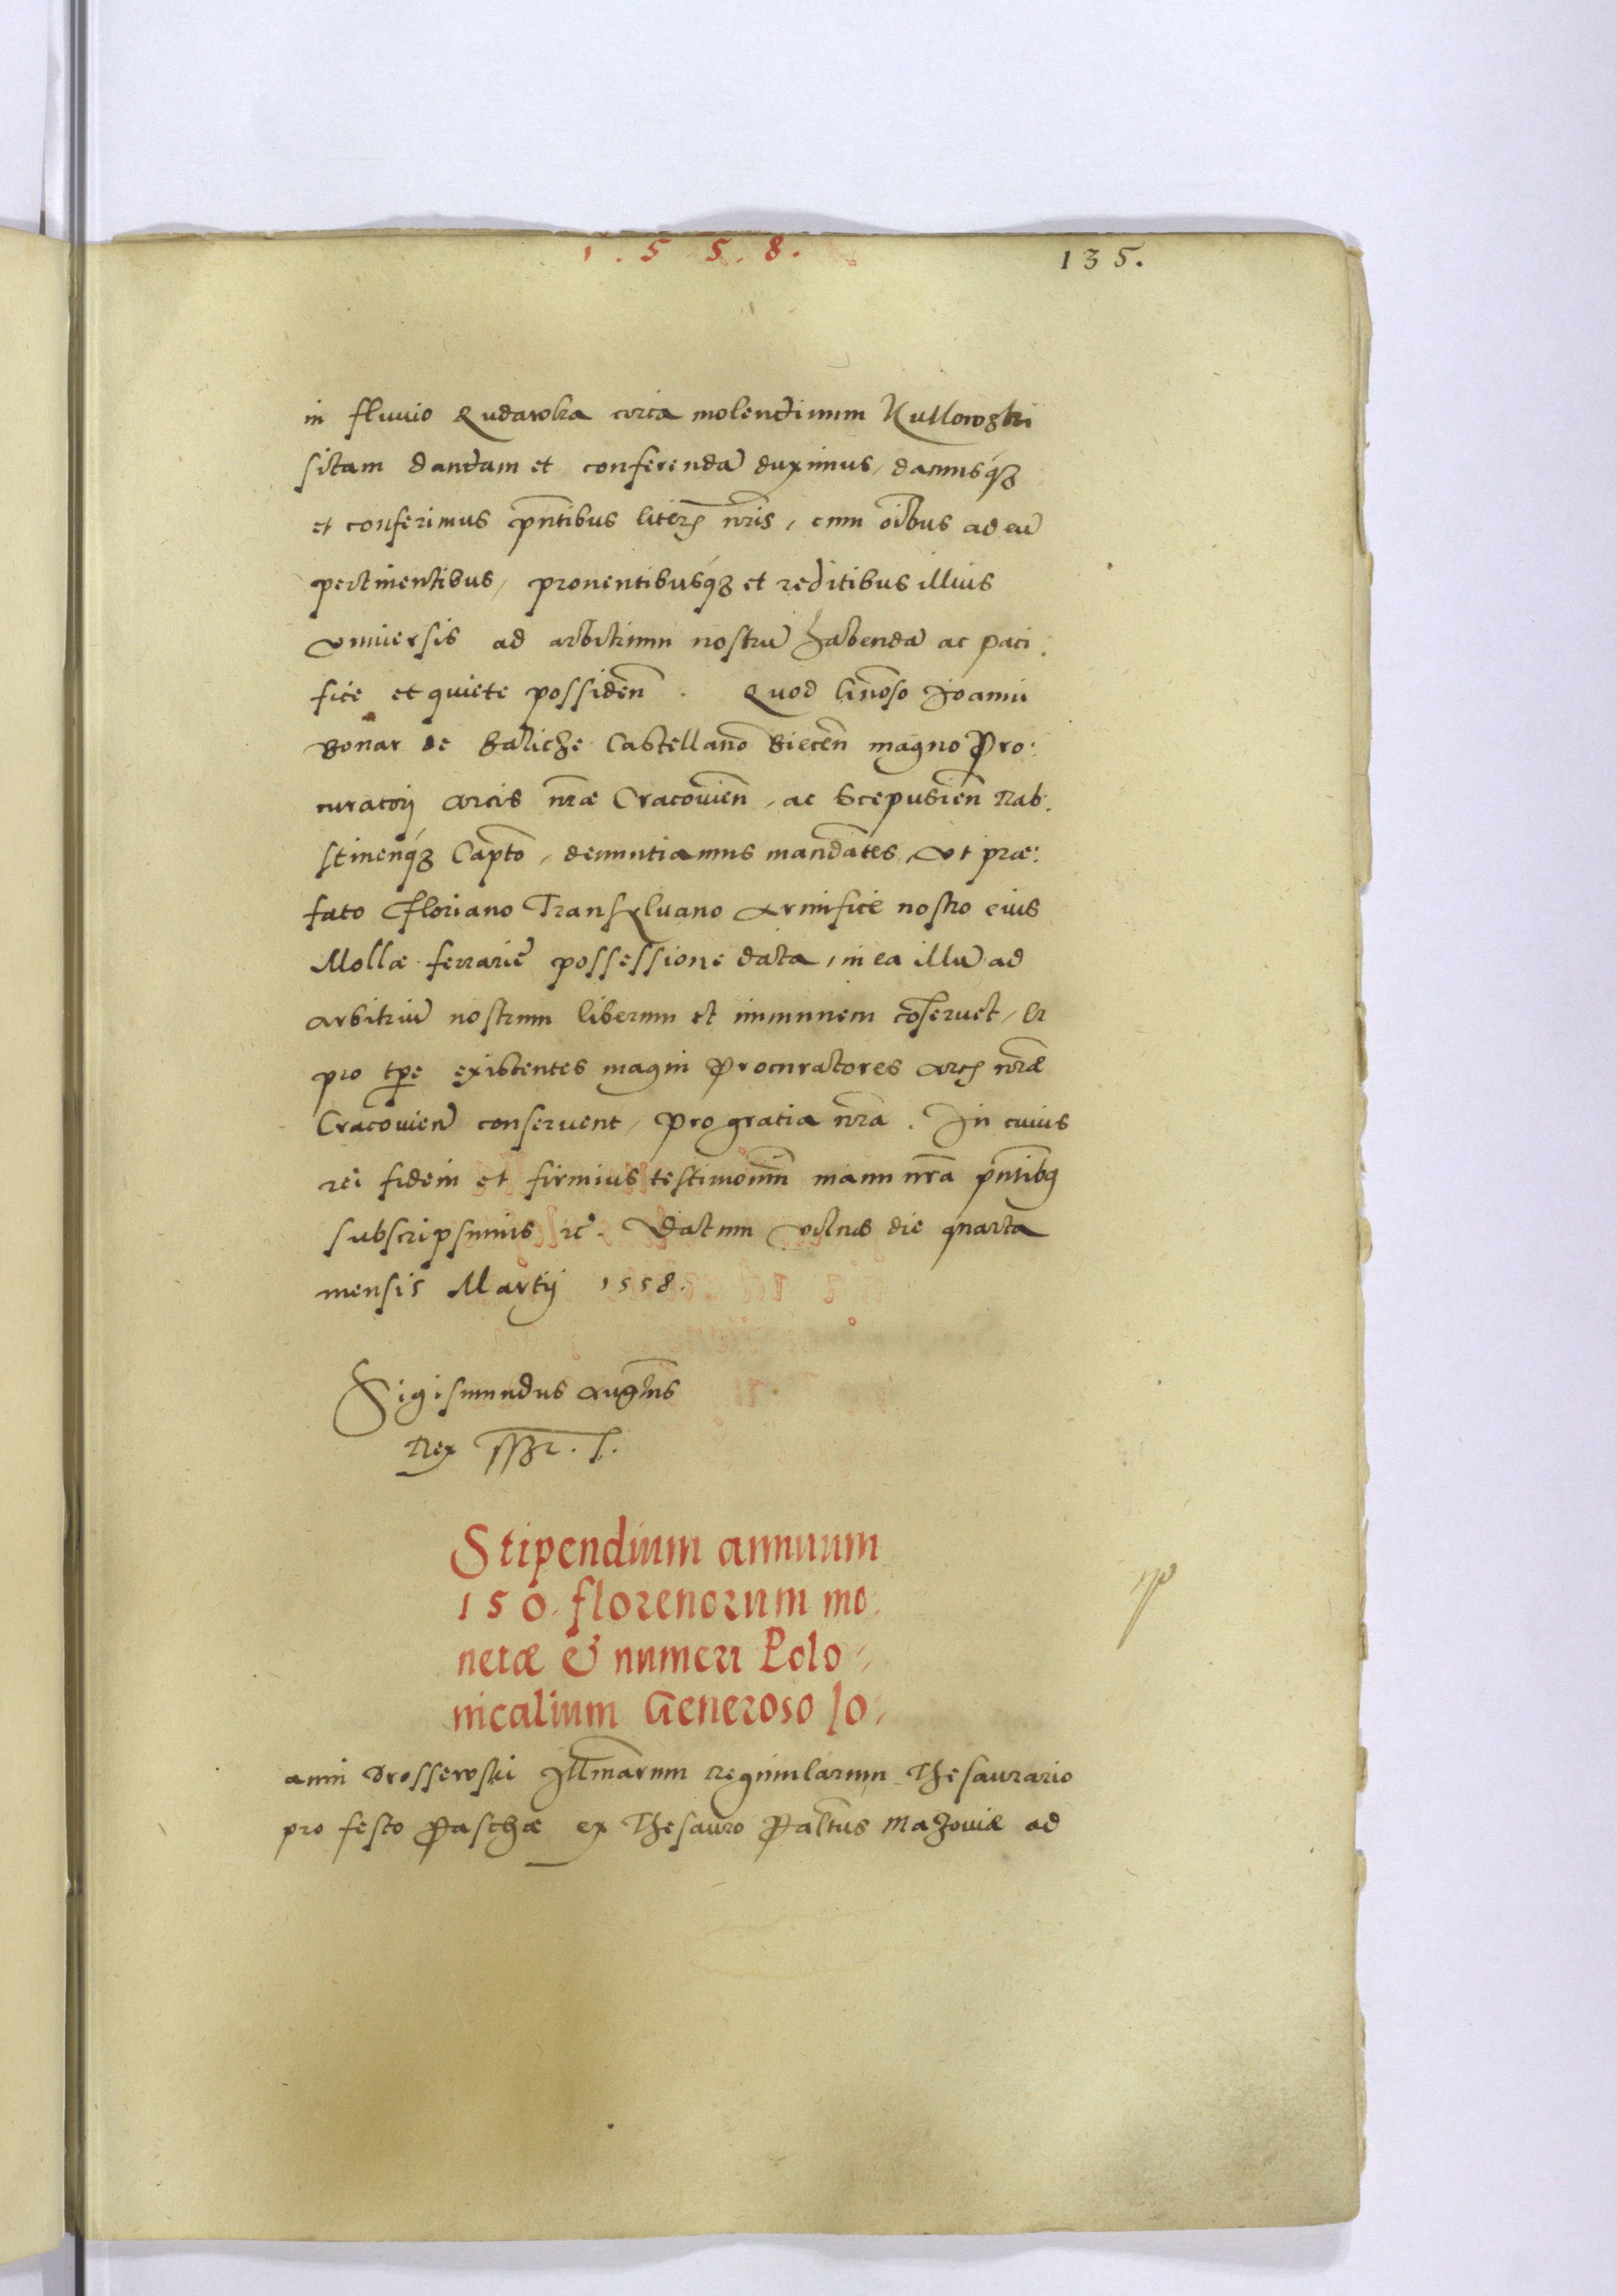 1.5 5.8.
135.
in fluuio Rudawka circa molendinum Kullowski
sitam dandam et conferendā duximus, damusq́ꝫ
et conferimus pn̄tibus literis nr̄is, cum oībus ad eū
pertinentibus, prouentibusq́ꝫ et reditibus illius
vniuersis ad arbitrium nostrū habendā ac paci:
fice et quiete possiden̄. Quod Gn̄oso Joanni
Bonar de Baliche Castellano Biecen̄ magno Pro:
curatorj arcis nr̄æ Cracouien̄, ac Scepusien̄ Rab:
stinenq́ꝫ Capto, denuntiamus mandātes, vt præ:
fato Floriano Transyluano armifice nostro eius
Mollæ ferrarie possessione data, in ea illū ad
arbitriū nostrum liberum et immunem cōseruet, et
pro tpe existentes magni Procuratores arcis nr̄æ
Cracouien̄ conseruent, pro gratia nr̄a. In cuius
rei fidem et firmius testimoniū manu nr̄a pn̄tibꝫ
subscripsimus ꝛc. Datum vilnæ die quarta
mensis Martij 1558.
Sigismundus Augtus
Rex sszt. l.
Stipendium annuum
150. florenorum mo:
netæ & numeri Polo:
nicalium Generoso Io:
anni Drossewski Illmarum Reginularum Thesaurario
pro festo Paschæ ex Thesauro Paltus Mazouiæ ad